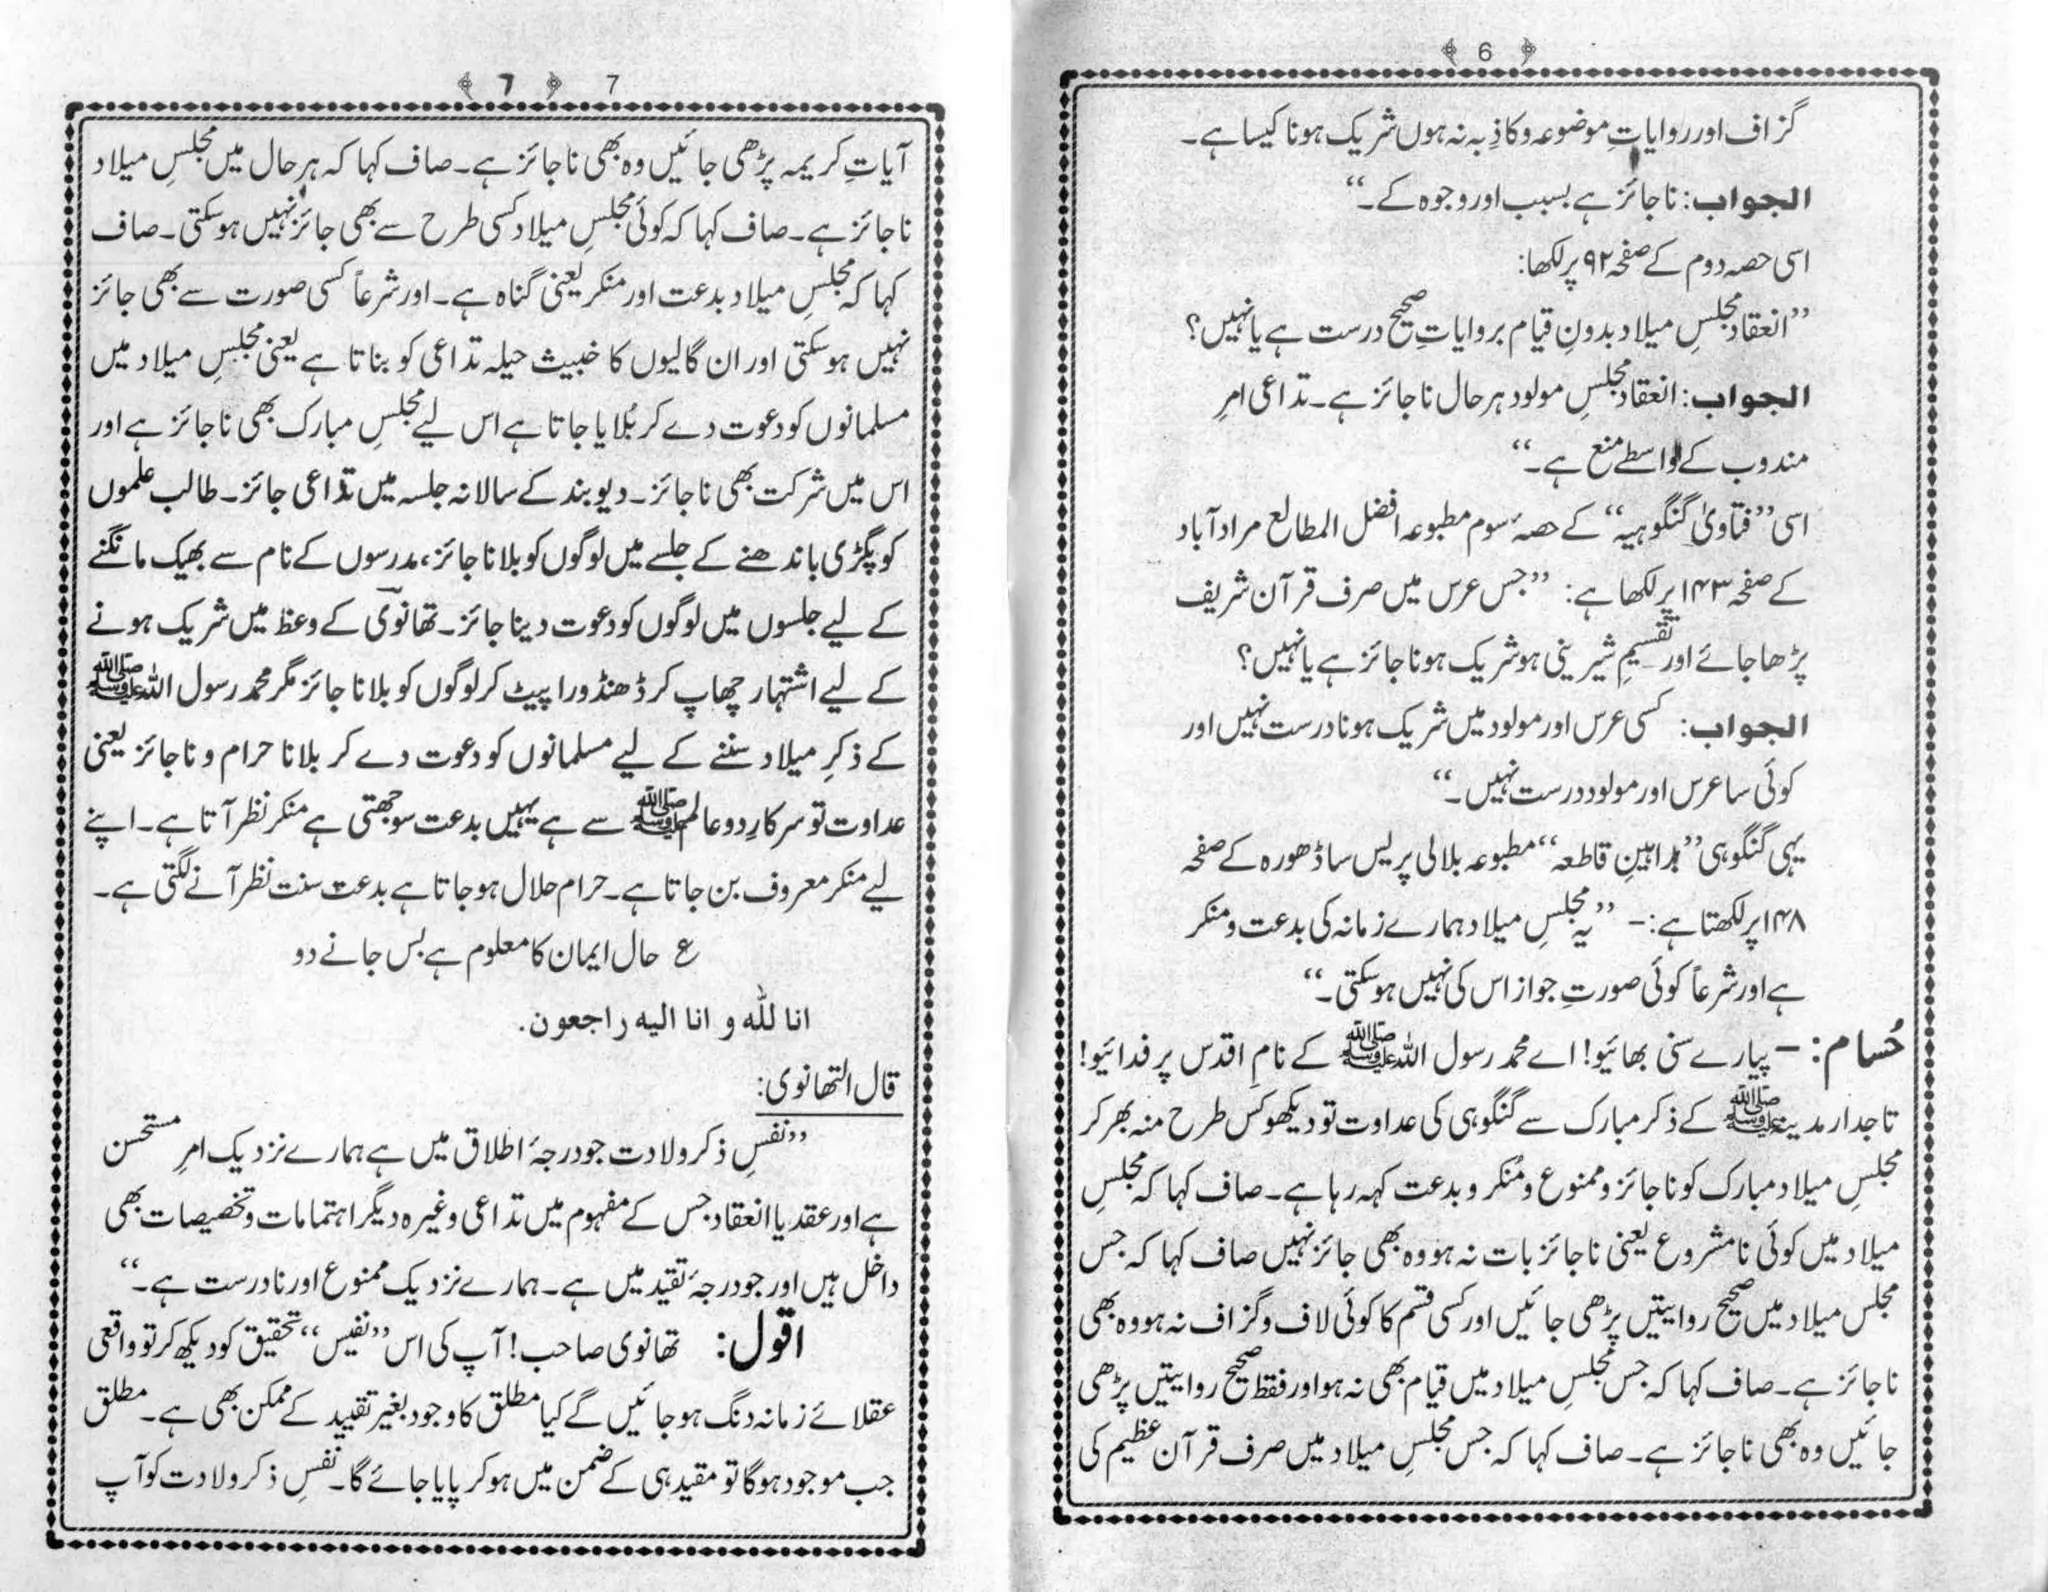 6
گزاف اور روایاتِ موضوعہ و کاذِبہ نہ ہوں شریک ہونا کیسا ہے۔
الجواب: ناجائز ہے بسبب اور وجوہ کے۔‘‘
اسی حصہ دوم کے صفحہ ۹۲ پر لکھا:
’’انعقادِ مجلسِ میلاد بدونِ قیام بروایاتِ صحیح درست ہے یا نہیں؟
الجواب: انعقادِ مجلسِ مولود ہر حال ناجائز ہے۔ تداعی امرِ
مندوب کے واسطے منع ہے۔‘‘
اسی ’’فتاویٰ گنگوہیہ‘‘ کے حصۂ سوم مطبوعہ افضل المطالع مرادآباد
کے صفحہ ۱۴۳ پر لکھا ہے: ’’جس عرس میں صرف قرآن شریف
پڑھا جائے اور تقسیمِ شیرینی ہو شریک ہونا جائز ہے یا نہیں؟
الجواب: کسی عرس اور مولود میں شریک ہونا درست نہیں اور
کوئی سا عرس اور مولود درست نہیں۔‘‘
یہی گنگوہی ’’براہینِ قاطعہ‘‘ مطبوعہ بلالی پریس ساڈھورہ کے صفحہ
۱۴۸ پر لکھتا ہے:- ’’یہ مجلسِ میلاد ہمارے زمانہ کی بدعت و منکر
ہے اور شرعاً کوئی صورتِ جواز اس کی نہیں ہوسکتی۔‘‘
حُسام:- پیارے سنی بھائیو! اے محمد رسول اللہ ﷺ کے نامِ اقدس پر فدائیو!
تاجدارِ مدینہ ﷺ کے ذکر مبارک سے گنگوہی کی عداوت تو دیکھو کس طرح منہ بھر کر
مجلسِ میلاد مبارک کو ناجائز و ممنوع و مُنکر و بدعت کہہ رہا ہے۔ صاف کہا کہ مجلسِ
میلاد میں کوئی نامشروع یعنی ناجائز بات نہ ہو وہ بھی جائز نہیں صاف کہا کہ جس
مجلس میلاد میں صحیح روایتیں پڑھی جائیں اور کسی قسم کا کوئی لاف و گزاف نہ ہو وہ بھی
ناجائز ہے۔ صاف کہا کہ جس مجلسِ میلاد میں قیام بھی نہ ہو اور فقط صحیح روایتیں پڑھی
جائیں وہ بھی ناجائز ہے۔ صاف کہا کہ جس مجلسِ میلاد میں صرف قرآن عظیم کی
7 7
آیاتِ کریمہ پڑھی جائیں وہ بھی ناجائز ہے۔ صاف کہا کہ ہر حال میں مجلسِ میلاد
ناجائز ہے۔ صاف کہا کہ کوئی مجلسِ میلاد کسی طرح سے بھی جائز نہیں ہوسکتی۔ صاف
کہا کہ مجلسِ میلاد بدعت اور منکر یعنی گناہ ہے۔ اور شرعاً کسی صورت سے بھی جائز
نہیں ہوسکتی اور ان گالیوں کا خبیث حیلہ تداعی کو بناتا ہے یعنی مجلسِ میلاد میں
مسلمانوں کو دعوت دے کر بُلایا جاتا ہے اس لیے مجلسِ مبارک بھی ناجائز ہے اور
اس میں شرکت بھی ناجائز۔ دیوبند کے سالانہ جلسہ میں تداعی جائز۔ طالب علموں
کو پگڑی باندھنے کے جلسے میں لوگوں کو بلانا جائز، مدرسوں کے نام سے بھیک مانگنے
کے لیے جلسوں میں لوگوں کو دعوت دینا جائز۔ تھانوی کے وعظ میں شریک ہونے
کے لیے اشتہار چھاپ کر ڈھنڈورا پیٹ کر لوگوں کو بلانا جائز مگر محمد رسول اللہ ﷺ
کے ذکرِ میلاد سننے کے لیے مسلمانوں کو دعوت دے کر بلانا حرام و ناجائز یعنی
عداوت تو سرکارِ دو عالم ﷺ سے ہے یہیں بدعت سوجھتی ہے منکر نظر آتا ہے۔ اپنے
لیے منکر معروف بن جاتا ہے۔ حرام حلال ہو جاتا ہے بدعت سنت نظر آنے لگتی ہے۔
ع حال ایمان کا معلوم ہے بس جانے دو
انا للہ و انا الیہ راجعون.
قال التھانوی:
’’نفسِ ذکر ولادت جو درجۂ اطلاق میں ہے ہمارے نزدیک امرِ مستحسن
ہے اور عقد یا انعقاد جس کے مفہوم میں تداعی وغیرہ دیگر اہتمامات و تخصیصات بھی
داخل ہیں اور جو درجۂ تقید میں ہے۔ ہمارے نزدیک ممنوع اور نادرست ہے۔‘‘
اقول: تھانوی صاحب! آپ کی اس ’’نفیس‘‘ تحقیق کو دیکھ کر تو واقعی
عقلائے زمانہ دنگ ہو جائیں گے کیا مطلق کا وجود بغیر تقیید کے ممکن بھی ہے۔ مطلق
جب موجود ہوگا تو مقید ہی کے ضمن میں ہوکر پایا جائے گا۔ نفسِ ذکر ولادت کو آپ